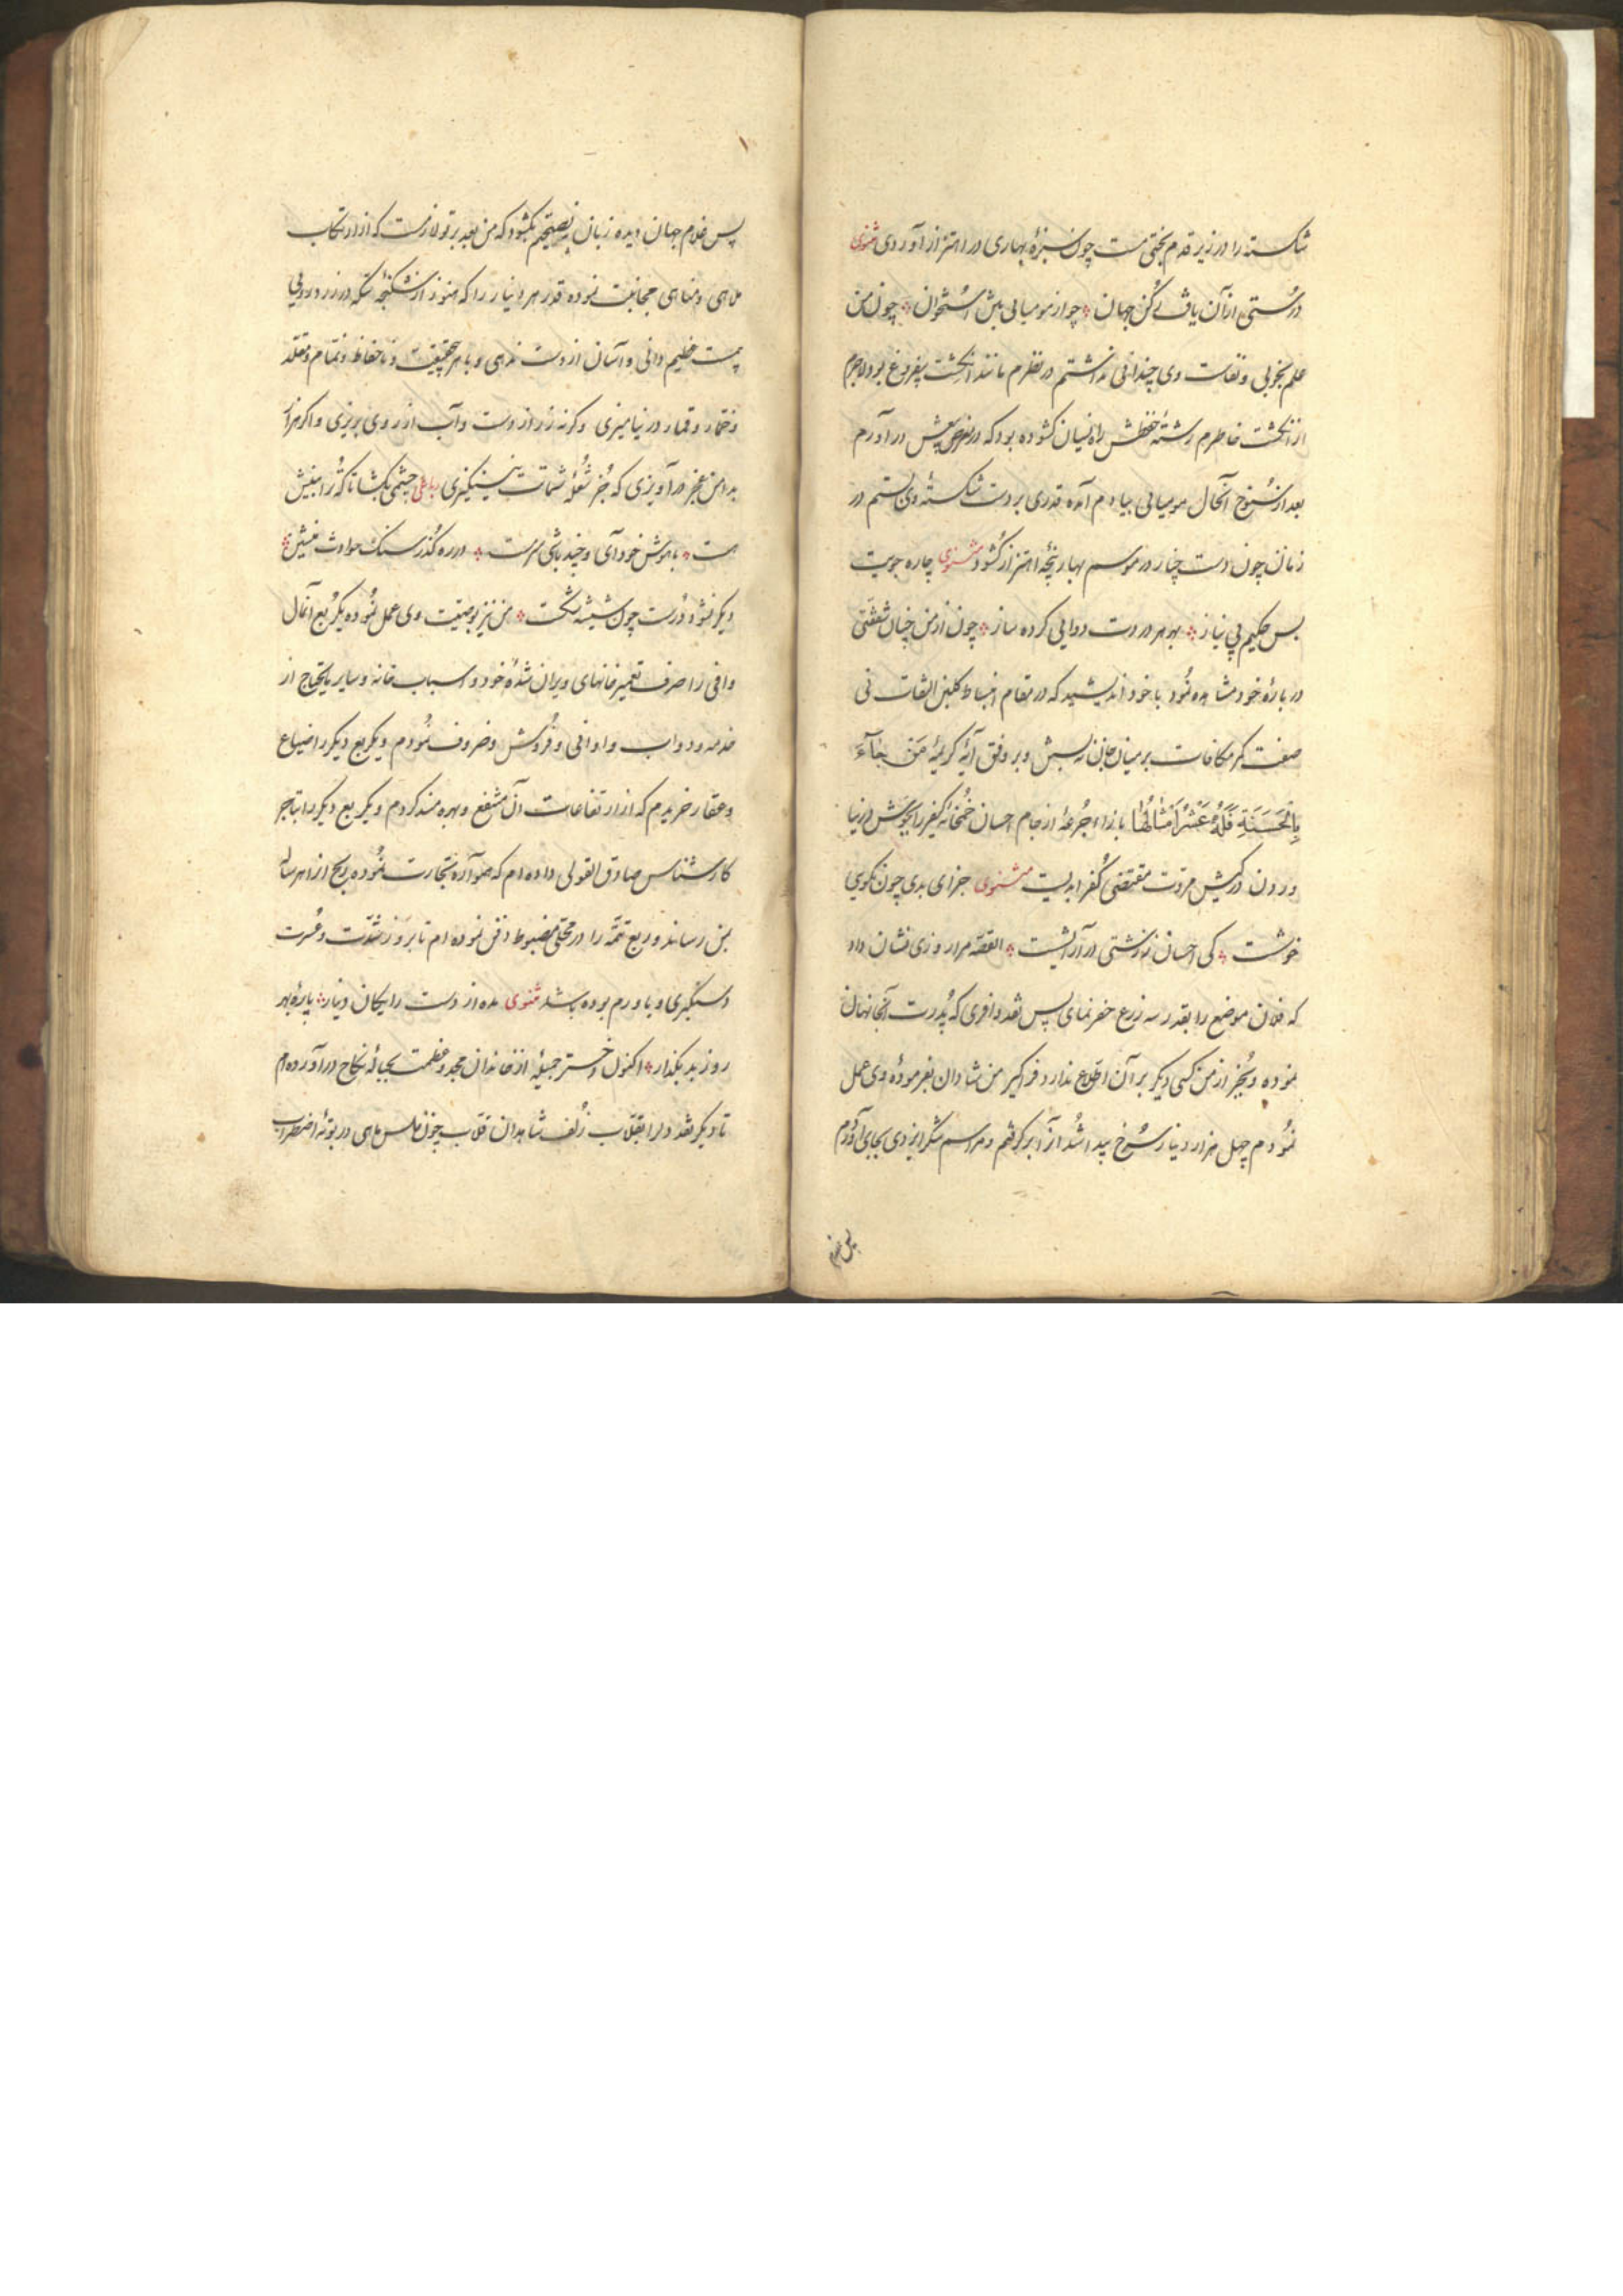 شکسته را در زیر قدم بختی مست چون سبزهٔ بهاری در اهتزاز آوردی مثنوی
درستی از آن یافت رکن جهان چو از مومیایی بلش استخوان چون من
علم بخوبی و نفاست وی چندانی نداشتم در نظرم مانند انگشت بیفروغ بود لاجرم
از انگشت خاطرم رشتهٔ حفظش راه نسیان گشوده بود که در معرض بیعش درآورم
بعد از سنوح آنحال مومیایی بیادم آمده قدری بر دست شکستهٔ وی بستم در
زمان چون دست چنار در موسم بهار پنجهٔ اهتزاز گشود مثنوی چاره جویست
بس حکیم بی نیاز بهر هر دردت دوایی کرده ساز چون از من چنان شفقتی
در بارهٔ خود مشاهده نمود با خود اندیشید که در مقام انبساط کلبن التفات نی
صفت کمر مکافات بر میان جان نه بستن و بر وفق آیهٔ کریمهٔ مَن جَآءَ
بِالْحَسَنَةِ فَلَهُ عَشْرُ اَمْثَالِهَا بازاء جرعهٔ از جام احسان خمخانهٔ کیفر را بجوش در نیا
وردن در کیش مروت مقتضی کفر ابدیست مثنوی جزای بدی چون نکویی
خوشست کی احسان ز زشتی در آرایشست القصه مرا روزی نشان داد
که فلان موضع را بقدر سه زرع حفر نمای پس نقد وافری که پدرت آنجا نهان
نموده و بجز از من کسی دیگر بر آن اطلاع ندارد فراگیر من شادان بفرمودهٔ وی عمل
نمودم چهل هزار دینار سرخ پیدا شد آنرا برگرفتم و مراسم شکر ایزدی بجای آوردم
پس غلام
پس غلام جهان دیده زبان بنصیحتم بگشود که من بعد بر تو لازمست که از ارتکاب
ملاهی و مناهی مجانبت نموده قدر هر دینار را که هنوز از شکنجهٔ سکه در زرد رویی
است عظیم دانی و آسان از دست ندهی و با هر بیحقیقت و ناحفاظ و نمام و مقلد
و خمار و قمار در نیامیزی و گرنه زر از دست و آب از روی بریزی و اگر هزار
بدامن عجز در آویزی که جز شعلهٔ شماتت نینگیزی رباعی چشمی بگشا تا که ترا بینش
هست باهوش خود آی و چند باشی سرمست در رهگذر سنک حوادث منشین
دیگر نشود درست چون شیشه شکست من نیز بوصیت وی عمل نموده یکربع آنمال
وافی را صرف تعمیر خانهای ویران شدهٔ خود و اسباب خانه و سایر مایحتاج از
خدمه و دواب و اوانی و فروش و ضروف نمودم و یکربع دیگر را ضیاع
و عقار خریدم که از ارتفاعات آن منتفع و بهره مند گردم و یکربع دیگر را بتاجر
کارشناس صادق القولی داده ام که همواره تجارت نموده ربح از هر ساله
بمن رساند و ربع تتمه را در محلی مضبوط دفن نموده ام تا بروز شدت و عسرت
دستگیری و یاورم بوده باشد مثنوی مده از دست رایکان دینار پارهٔ بهر
روز بد بگذار اکنون دختر جمیلهٔ از خاندان مجد و عظمت بحبالهٔ نکاح درآورده ام
تا دیگر نقد دلرا بقلاب زلف شاهدان قلاب چون فلس ماهی در بوتهٔ اضطراب